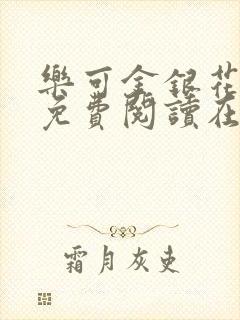 樂可金銀花
免費閱讀在
霜月灰吏